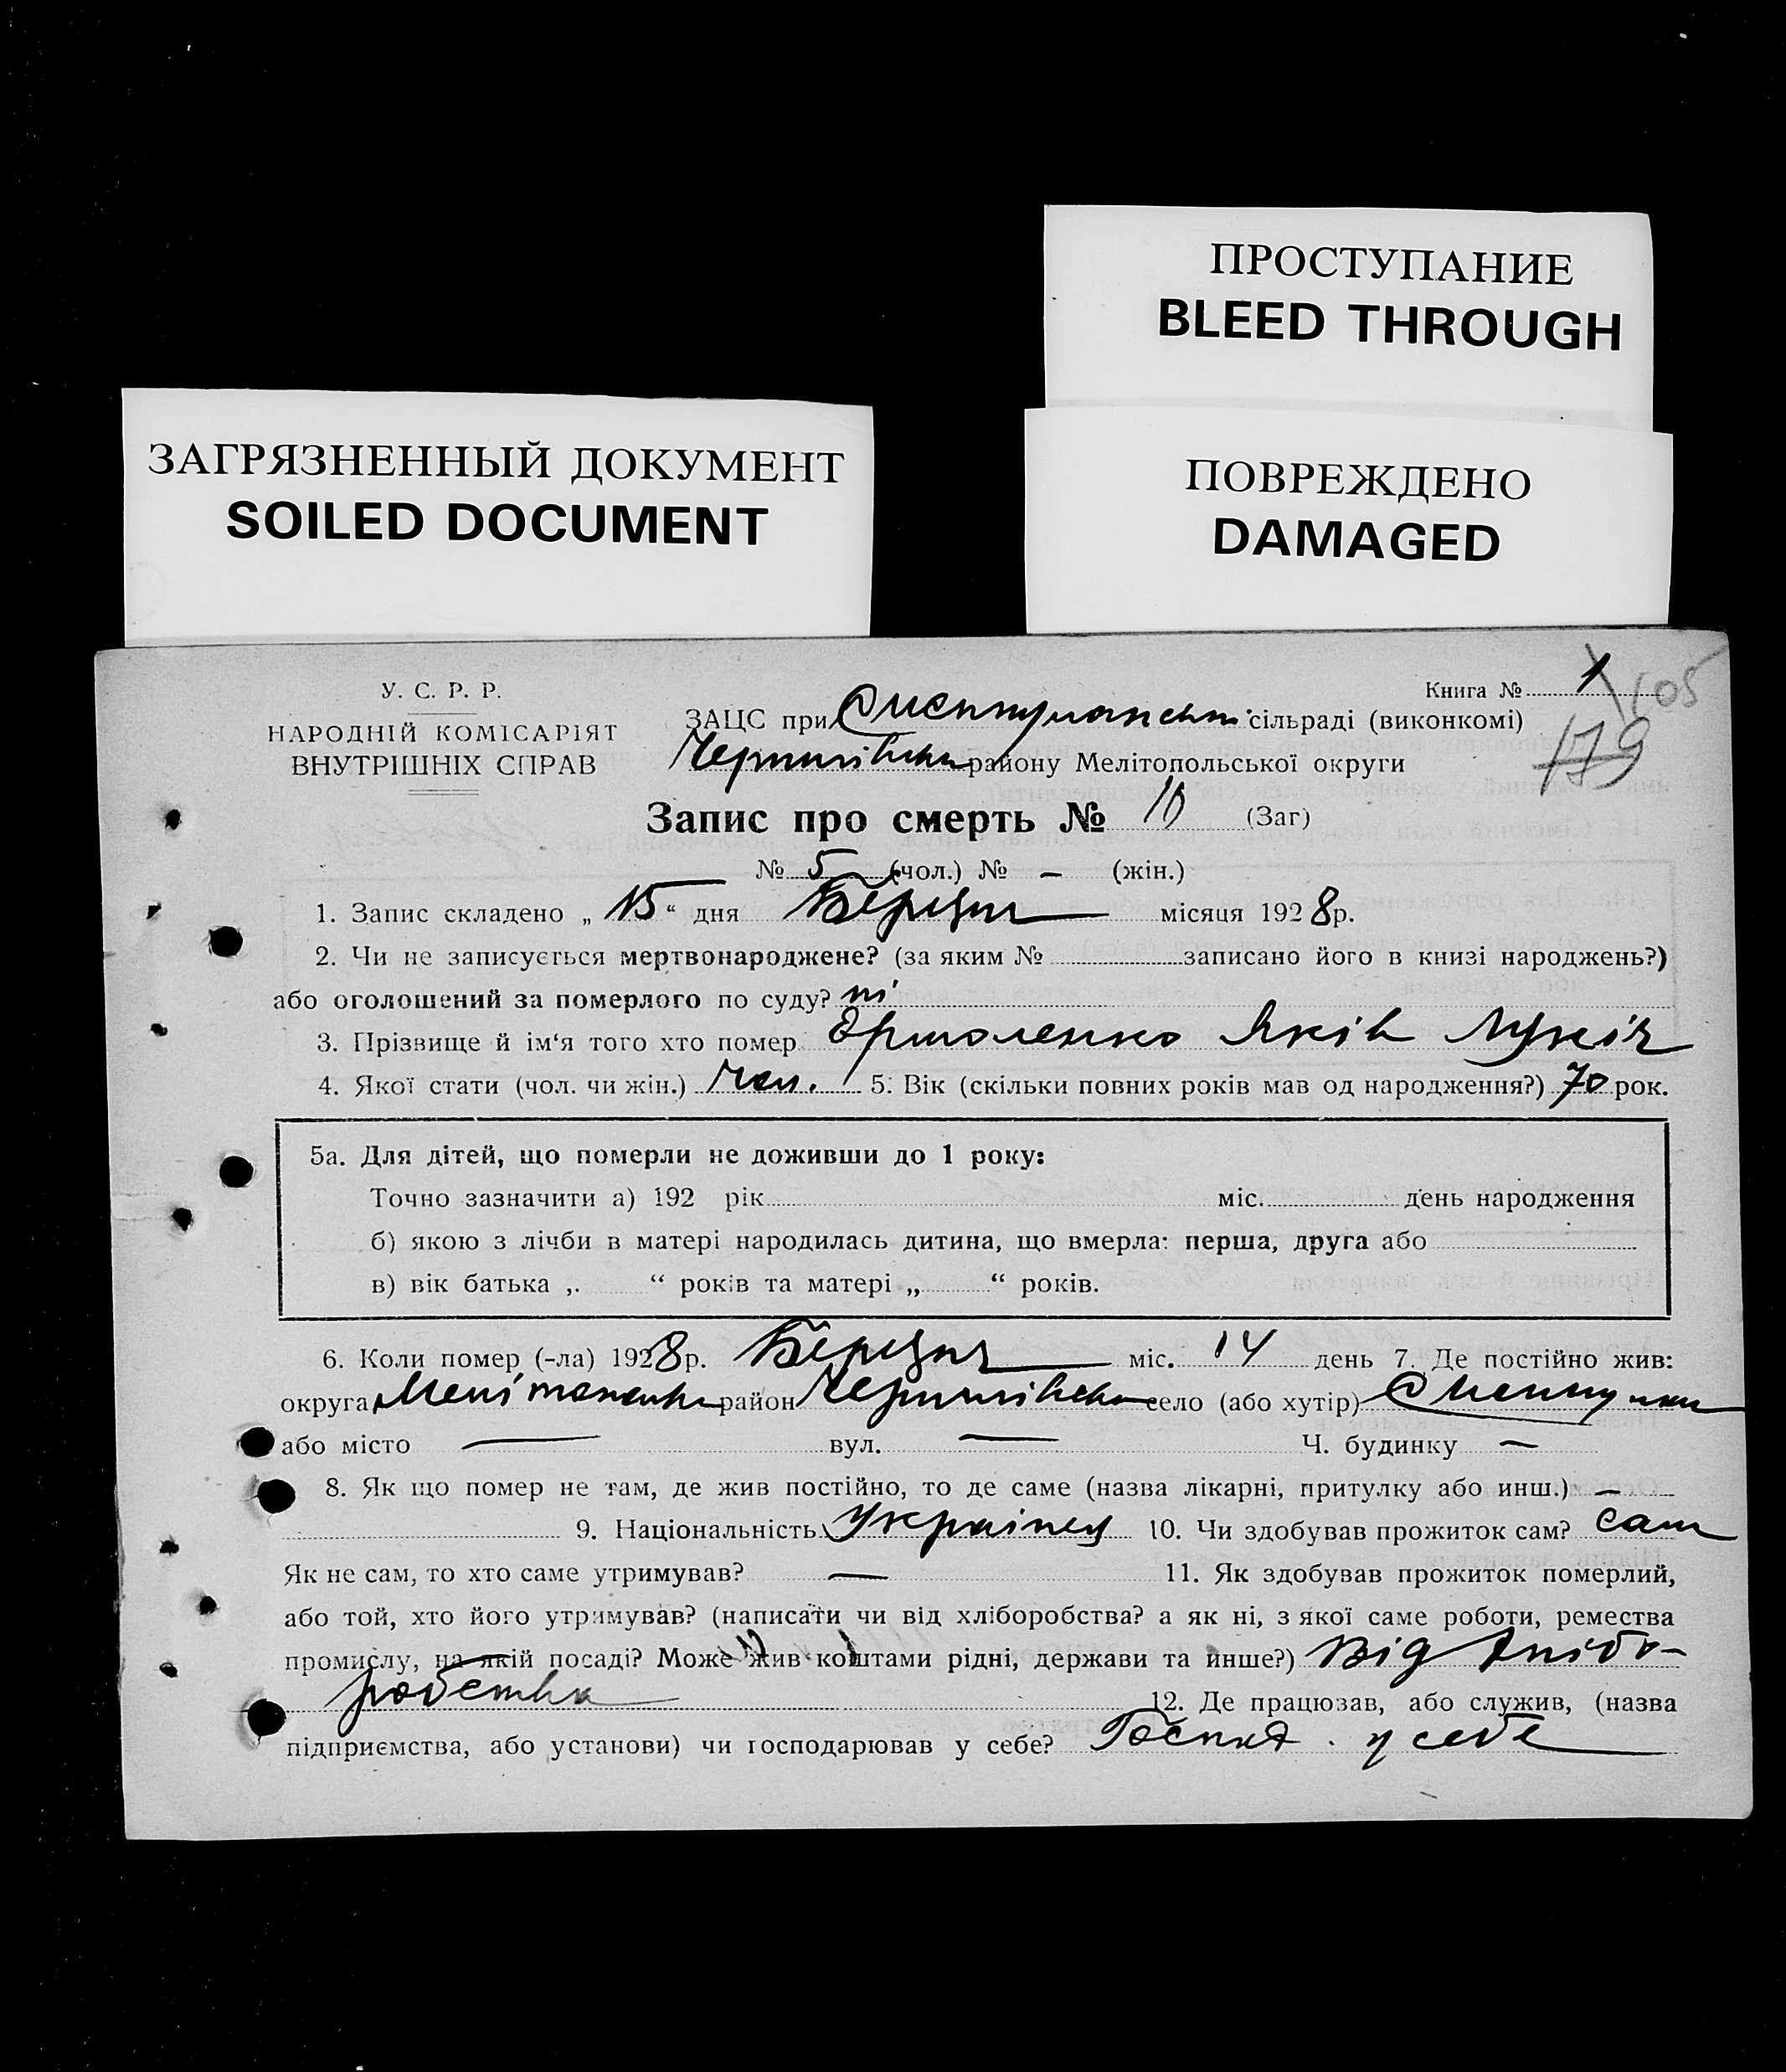 ПРОСТУПАНИЕ
BLEED THROUGH
ЗАГРЯЗНЕННЫЙ ДОКУМЕНТ
SOILED DOCUMENT
ПОВРЕЖДЕНО
DAMAGED
У. С. Р. Р.
НАРОДНІЙ КОМІСАРІЯТ
ВНУТРІШНІХ СПРАВ
Книга № 1
105
179
ЗАЦС при сільраді (виконкомі)
Чернигівськ району Мелітопольської округи
Запис про смерть № 10 (Заг)
№ 5 (чол.) № — (жін.)
1. Запис складено „ 15 “ дня Березня місяця 1928 р.
2. Чи не записується мертвонароджене? (за яким № записано його в книзі народжень?)
або оголошений за померлого по суду? ні
3. Прізвище й ім‘я того хто помер Ярмоленко Яків Лукіч
4. Якої стати (чол. чи жін.) чол. 5. Вік (скільки повних років мав од народження?) 70 рок.
5а. Для дітей, що померли не доживши до 1 року:
Точно зазначити а) 192 рік міс. день народження
б) якою з лічби в матері народилась дитина, що вмерла: перша, друга або
в) вік батька „ “ років та матері „ “ років.
6. Коли помер (-ла) 1928 р. Березня міс. 14 день 7. Де постійно жив:
округа Мелітопольськ район Чернигівськ село (або хутір)
або місто — вул. — Ч. будинку —
8. Як що помер не там, де жив постійно, то де саме (назва лікарні, притулку або инш.) —
9. Національність Українец 10. Чи здобував прожиток сам? сам
Як не сам, то хто саме утримував? — 11. Як здобував прожиток померлий,
або той, хто його утримував? (написати чи від хліборобства? а як ні, з якої саме роботи, ремества
промислу, на якій посаді? Може жив коштами рідні, держави та инше?) Від хлібо-
робства 12. Де працював, або служив, (назва
підприємства, або установи) чи господарював у себе? Господ. у себе